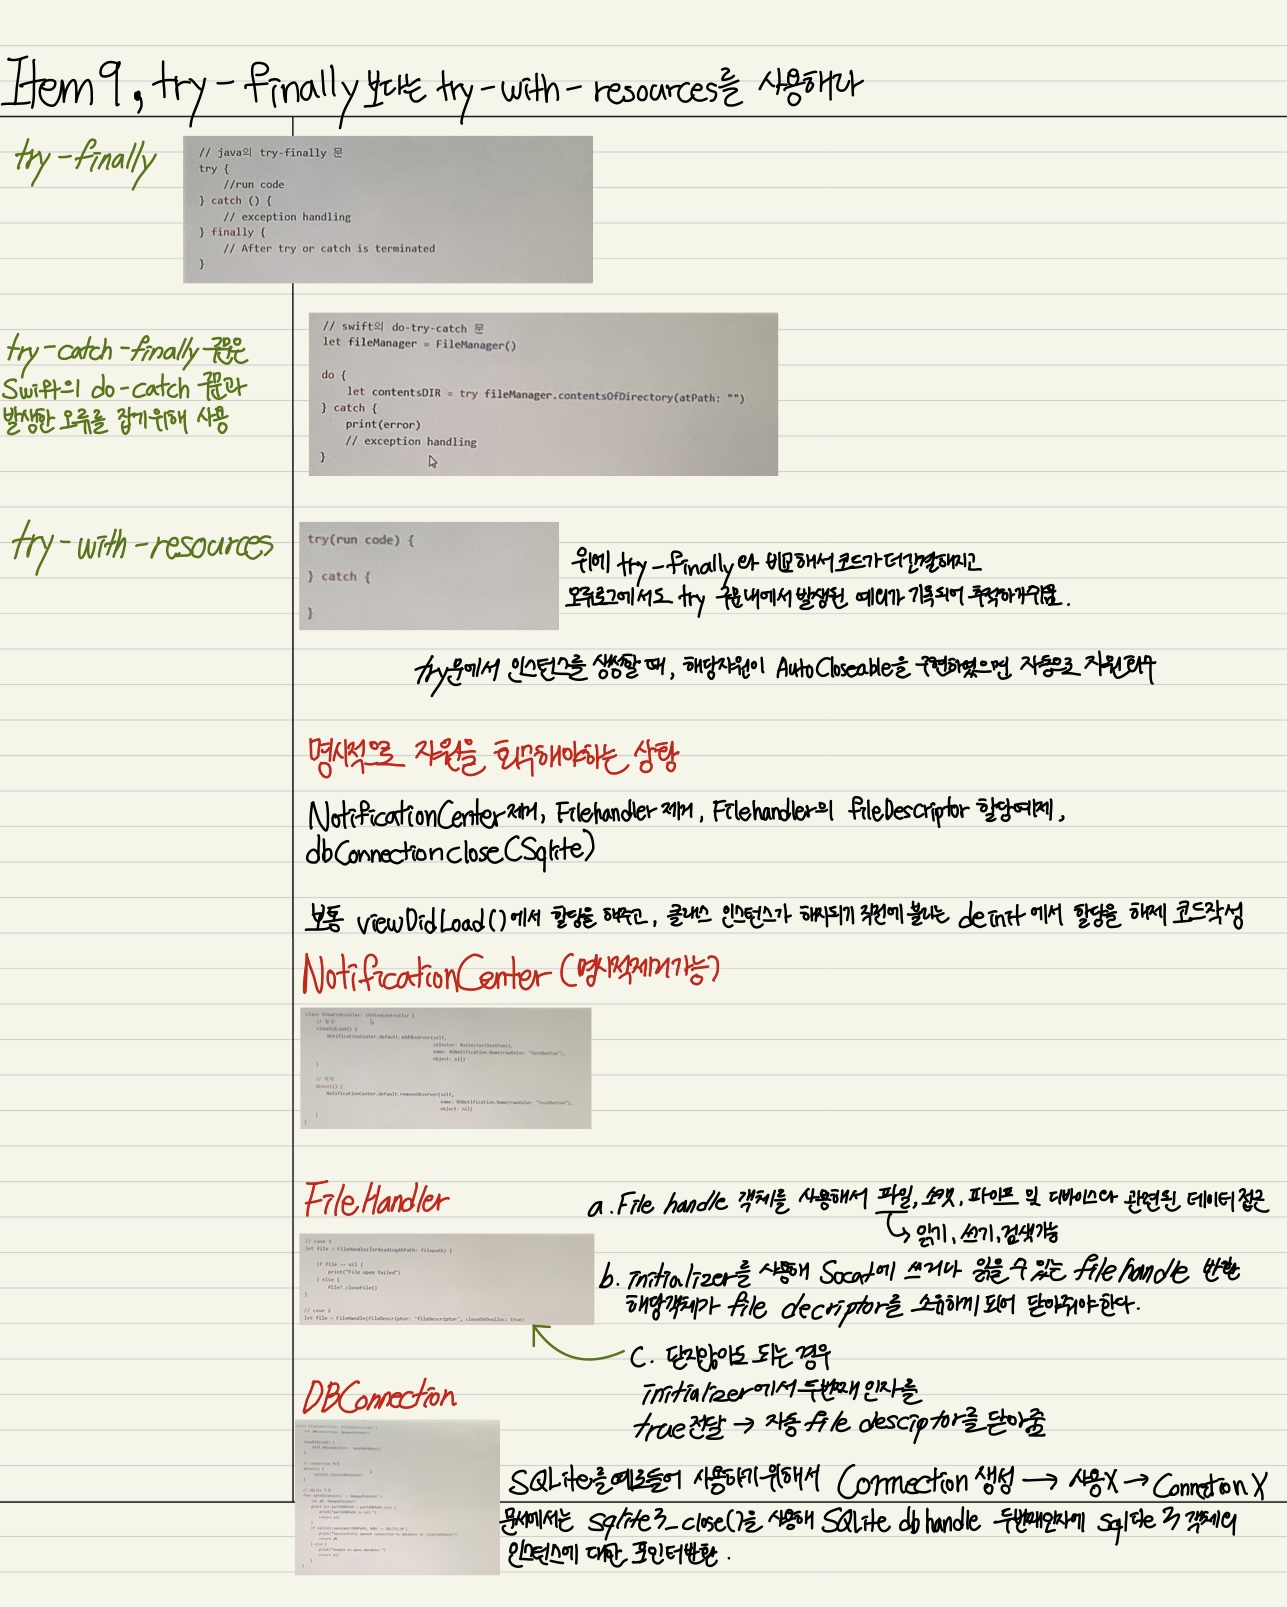 Item 9, try-finally 보다는 try-with-resources를 사용해라
try-finally
// java의 try-finally 문
try {
//run code
} catch () {
// exception handling
} finally {
// After try or catch is terminated
}
try-catch-finally 구문은
Swift의 do-catch 구문과
발생한 오류를 잡기위해 사용
// swift의 do-try-catch 문
let fileManager = FileManager()
do {
let contentsDIR = try fileManager.contentsOfDirectory(atPath: "")
} catch {
print(error)
// exception handling
}
try-with-resources
try(run code) {
} catch {
}
위에 try-finally와 비교해서 코드가 더 간결해지고
오류로그에서도 try 구문내에서 발생된 에러가 기록되어 추적하기쉬움.
try문에서 인스턴스를 생성할 때, 해당자원이 AutoCloseable을 구현하였으면, 자동으로 자원회수
명시적으로 자원을 회수해야하는 상황
NotificationCenter 제거, Filehandler 제거, Filehandler의 fileDescriptor 할당예제,
dbConnection close(Sqlite)
보통 viewDidLoad()에서 할당을 해주고, 클래스 인스턴스가 해지되기 직전에 불리는 deinit에서 할당을 해제 코드작성
NotificationCenter (명시적제거가능)
class ViewController: UIViewController {
viewDidLoad() {
NotificationCenter.default.addObserver(self,
selector: #selector(testFunc),
name: NSNotification.Name(rawValue: "testButton"),
object: nil)
}
deinit() {
NotificationCenter.default.removeObserver(self,
name: NSNotification.Name(rawValue: "testButton"),
object: nil)
}
}
FileHandler
// case 1
let file = FileHandle(forReadingAtPath: filepath) {
if file == nil {
print("File open failed")
} else {
file?.closeFile()
}
// case 2
let file = FileHandle(fileDescriptor: 'fileDescriptor', closeOnDealloc: true)
a. File handle 객체를 사용해서 파일, 소켓, 파이프 및 디바이스와 관련된 데이터 접근
읽기, 쓰기, 검색가능
b. initializer를 사용해 Socat에 쓰거나 읽을 수 있는 filehandle 반환
해당객체가 file decriptor를 소유하게 되어 닫아줘야한다.
C. 닫지않아도 되는 경우
initializer에서 두번째 인자를
true 전달 → 자동 file descriptor를 닫아줌
DBConnection
SQLite를 예로들어 사용하기 위해서 Connection 생성 → 사용X → Connction X
문서에서는 sqlite3_close()을 사용해 SQLite db handle 두번째인자에 sqlite 3 객체의
인스턴스에 대한 포인터반환.